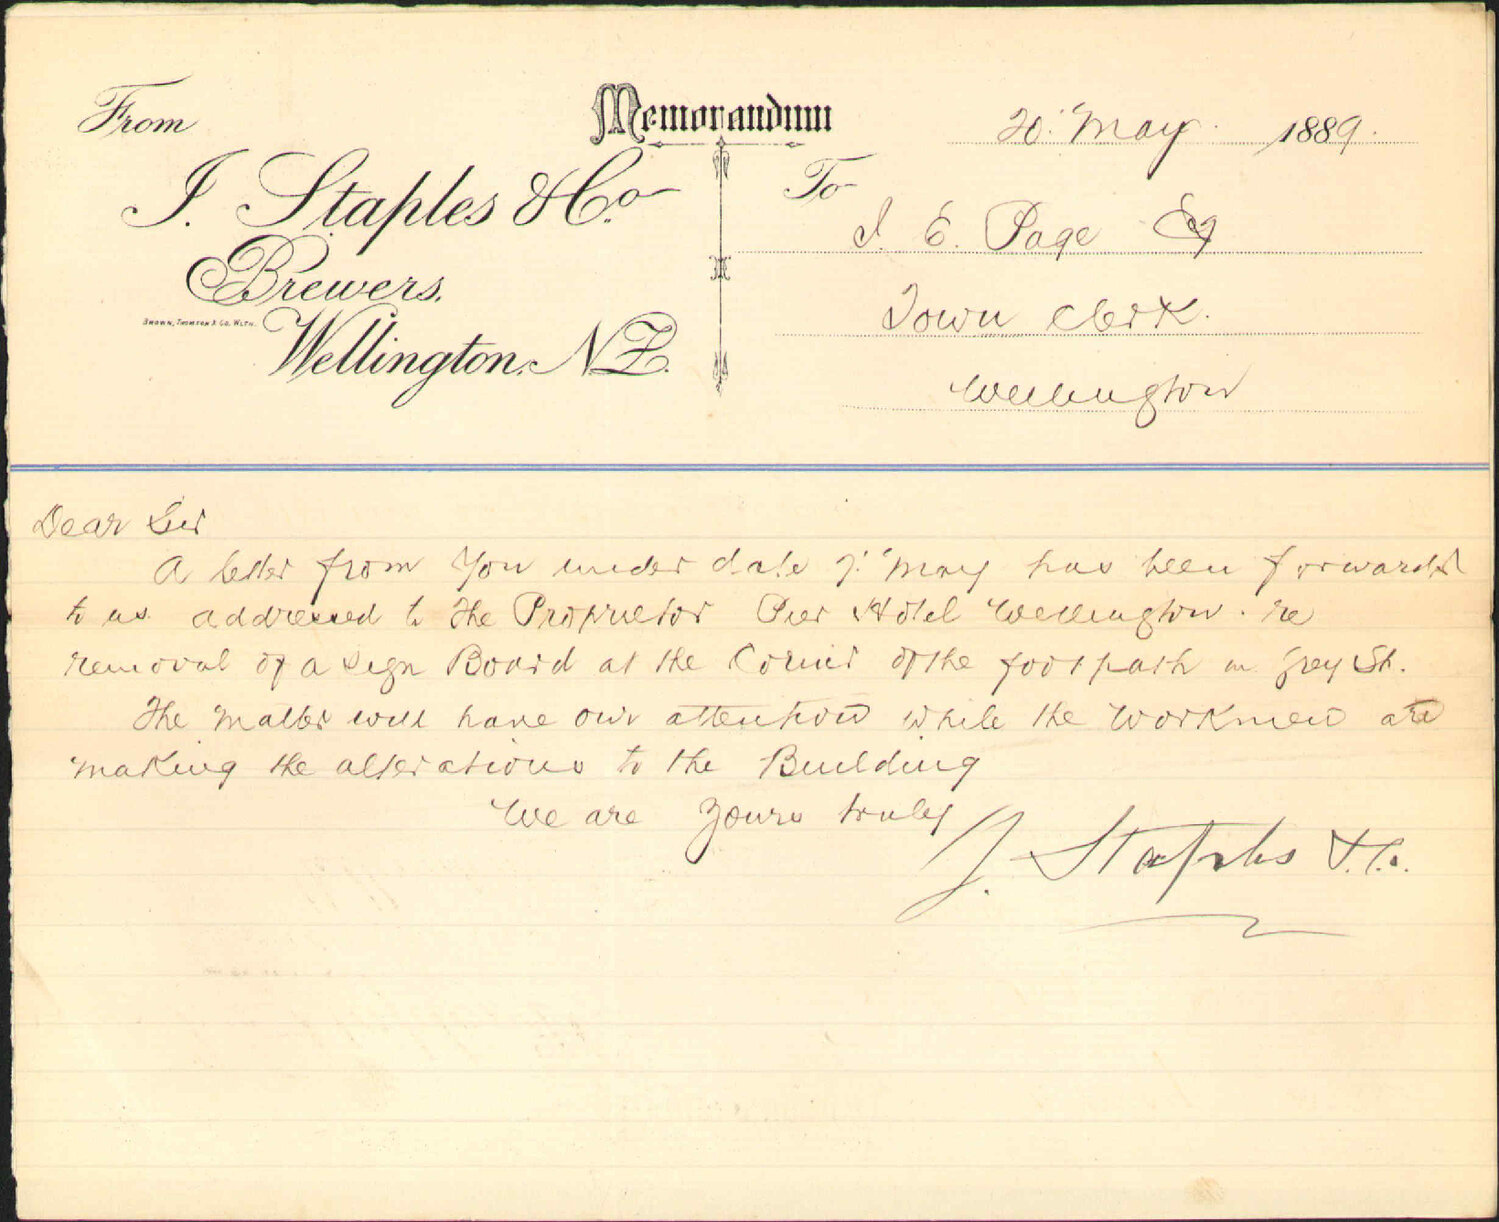 Memorandum
From
J. Staples & Co
Brewers,
Wellington, N.Z.
Brown, Thomson & Co. Wltn.
20" May 1889.
To
J. E. Page Esq
Town Clerk.
Wellington
Dear Sir
A letter from you under date 7" May has been forwarded
to us addressed to the Proprietor Pier Hotel Wellington. re
removal of a sign Board at the Corner of the footpath in Grey St.
The matter will have our attention while the workmen are
making the alterations to the Building
We are yours truly
J. Staples & Co.